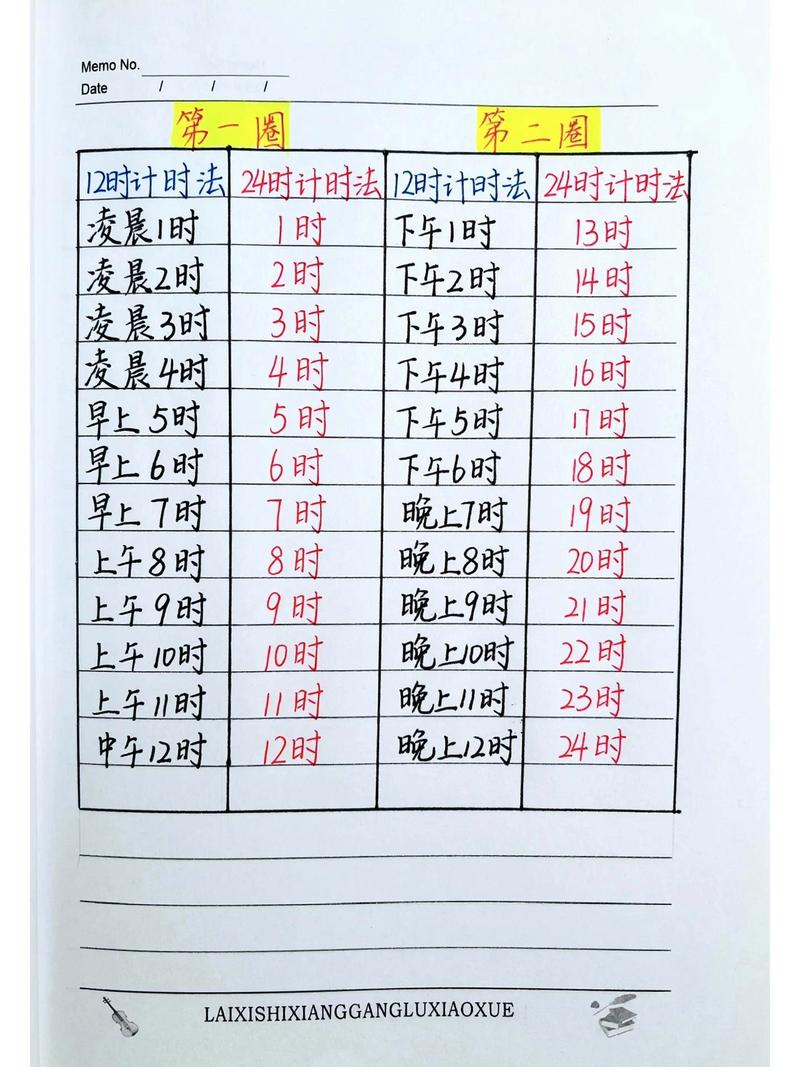 Memo No.
Date / / /
第一圈 第二圈
12时计时法 24时计时法 12时计时法 24时计时法
凌晨1时 1时 下午1时 13时
凌晨2时 2时 下午2时 14时
凌晨3时 3时 下午3时 15时
凌晨4时 4时 下午4时 16时
早上5时 5时 下午5时 17时
早上6时 6时 下午6时 18时
早上7时 7时 晚上7时 19时
上午8时 8时 晚上8时 20时
上午9时 9时 晚上9时 21时
上午10时 10时 晚上10时 22时
上午11时 11时 晚上11时 23时
中午12时 12时 晚上12时 24时
LAIXISHIXIANGGANGLUXIAOXUE